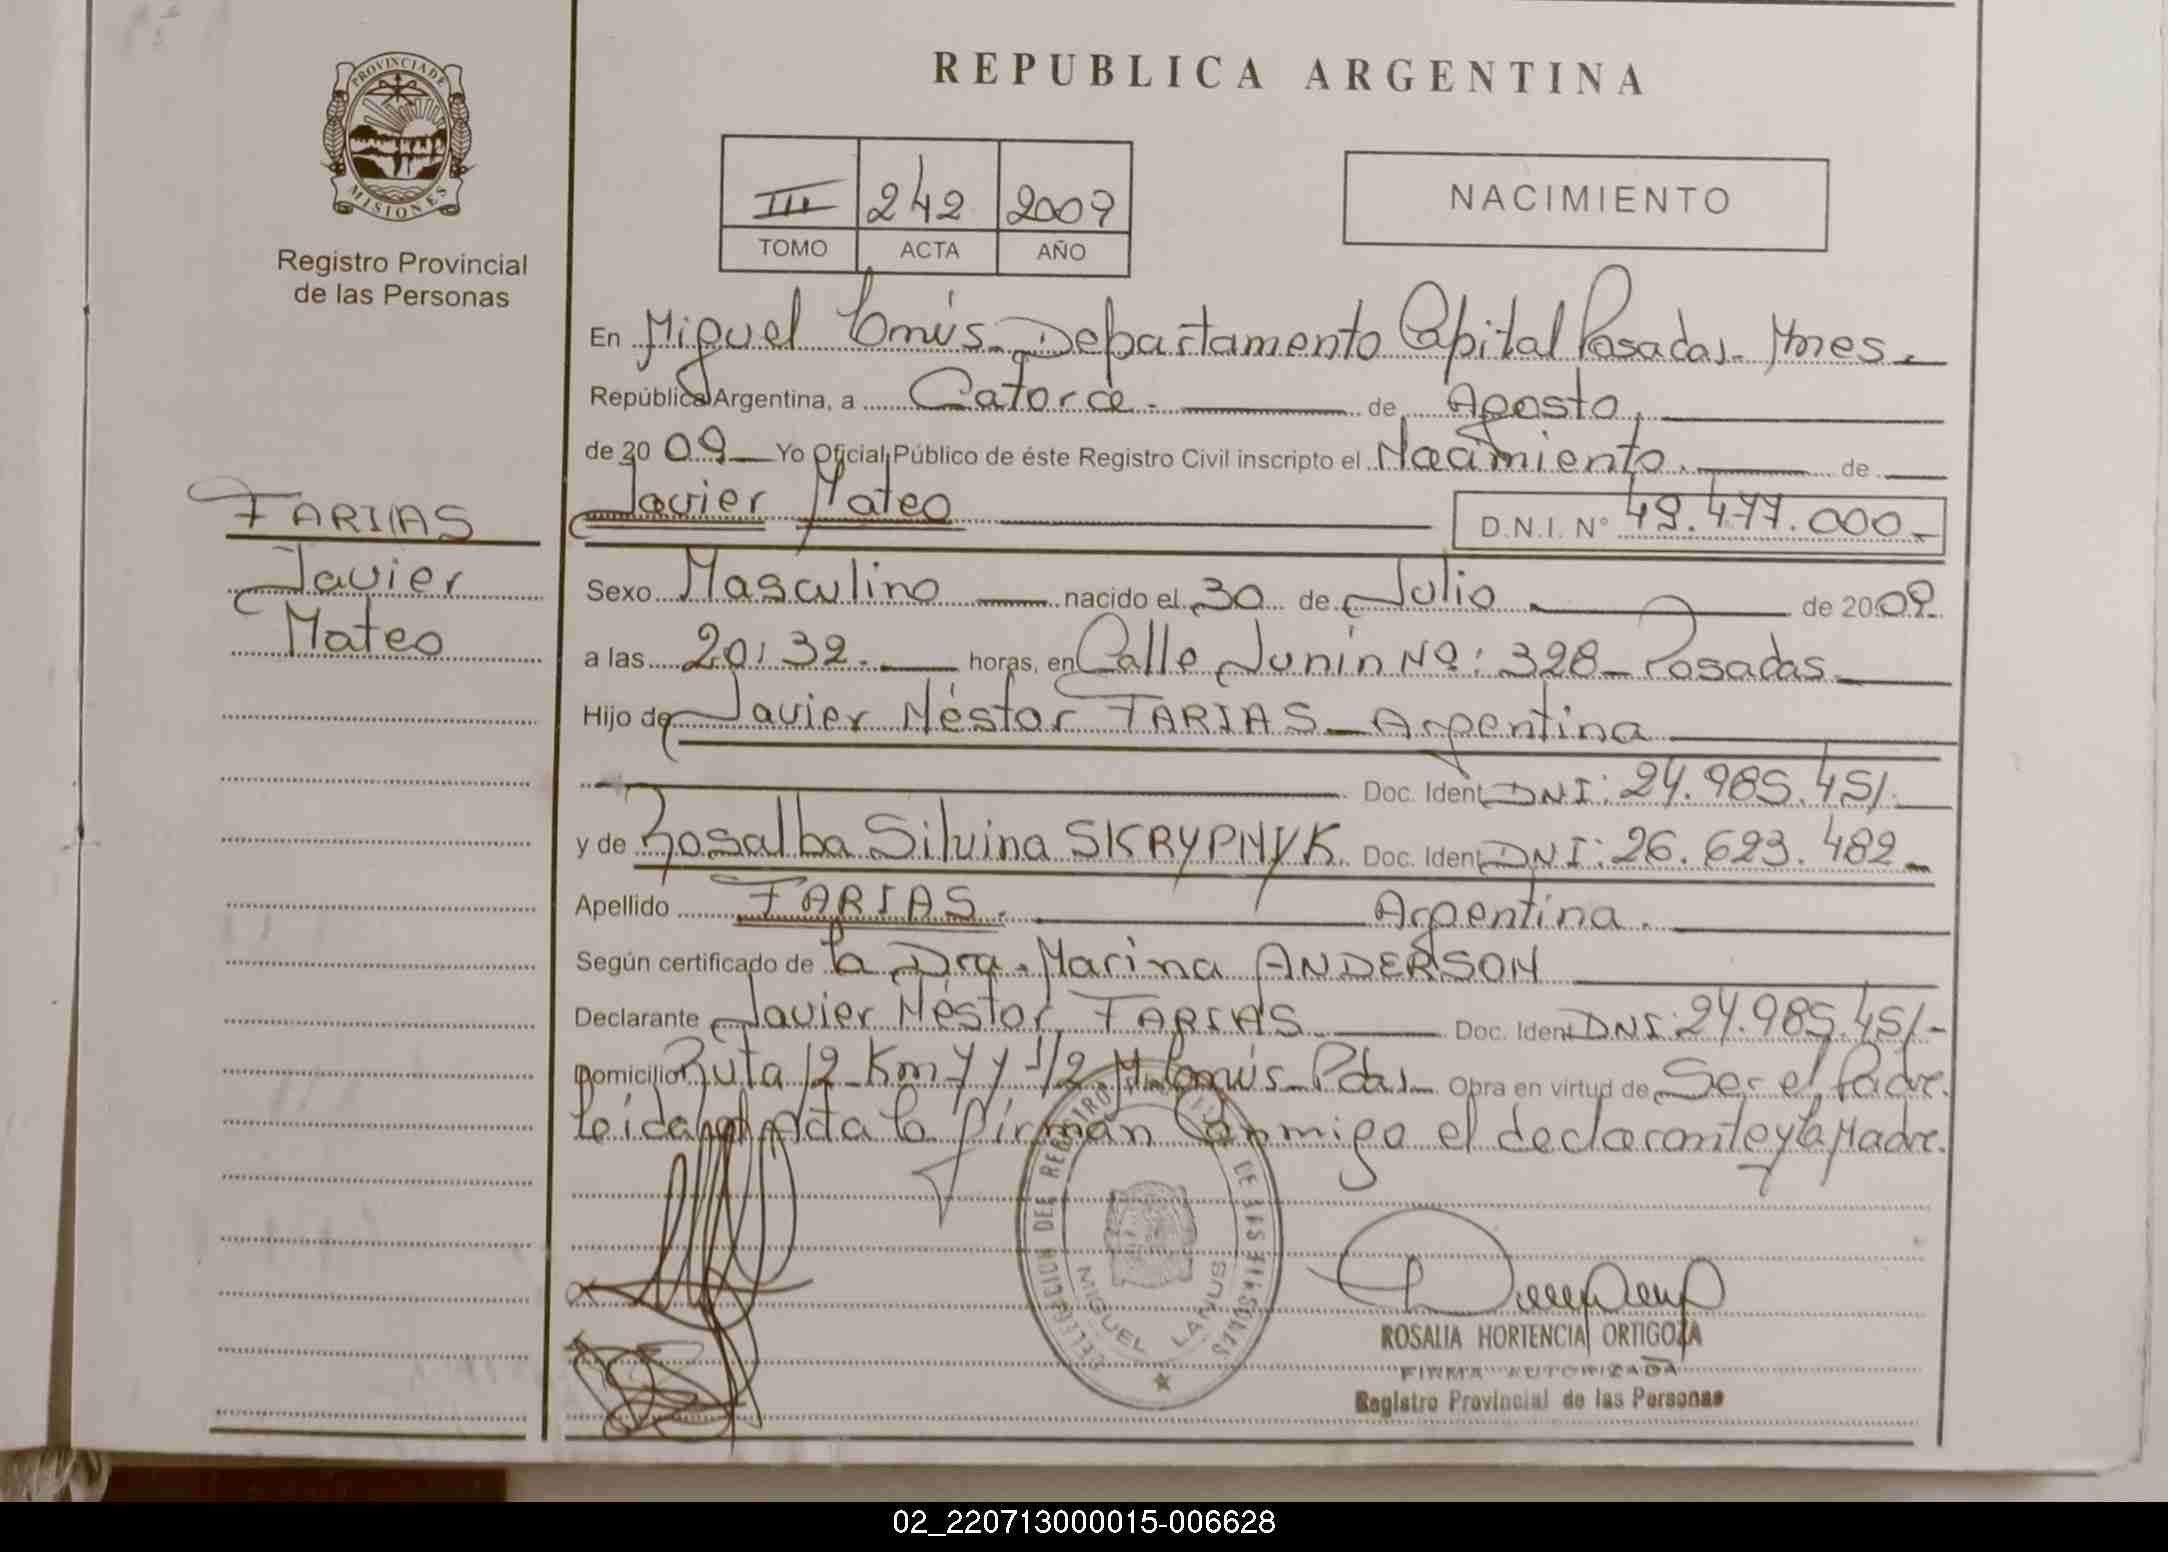 PROVINCIA DE
MISIONES
Registro Provincial
de las Personas
REPUBLICA ARGENTINA
III 242 2009
TOMO ACTA AÑO
NACIMIENTO
En Miguel Lanús - Departamento Capital Posadas - Mnes.
República Argentina, a Catorce. de Agosto,
de 2009 Yo Oficial Público de éste Registro Civil inscripto el Nacimiento. de
Javier Mateo D.N.I. Nº 49.477.000-
FARIAS
Javier
Mateo
Sexo Masculino nacido el 30 de Julio de 2009.
a las 20:32. horas, en Calle Junín Nº: 328 - Posadas
Hijo de Javier Néstor FARIAS - Argentina
Doc. Ident DNI: 24.985.451.
y de Rosalba Silvina SKRYPNYK. Doc. Ident DNI: 26.623.482-
Apellido FARIAS. Argentina.
Según certificado de la Dra. Marina ANDERSON
Declarante Javier Néstor FARIAS Doc. Ident DNI: 24.985.451-
Domicilio Ruta 12 Km 7 y 1/2 M. Lanús - Pdas. Obra en virtud de Ser el Padre.
Leida el Acta la firman Conmigo el declarante y la Madre.
DELEGACION DEL REGISTRO PROVINCIAL DE LAS PERSONAS
MIGUEL LANUS
ROSALIA HORTENCIA ORTIGOZA
FIRMA AUTORIZADA
Registro Provincial de las Personas
02_220713000015-006628